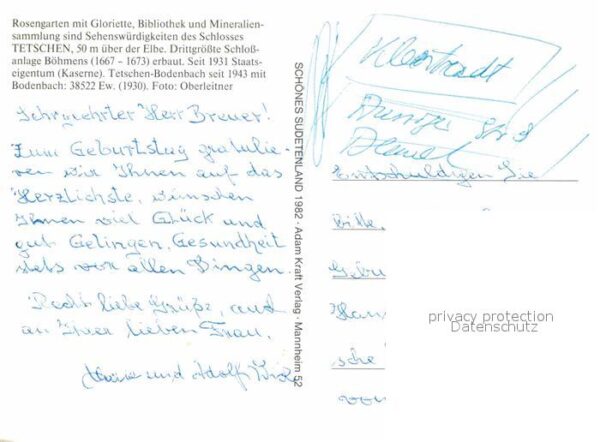 Rosengarten mit Gloriette, Bibliothek und Mineralien-
sammlung sind Sehenswürdigkeiten des Schlosses
TETSCHEN, 50 m über der Elbe. Drittgrößte Schloß-
anlage Böhmens (1667 – 1673) erbaut. Seit 1931 Staats-
eigentum (Kaserne). Tetschen-Bodenbach seit 1943 mit
Bodenbach: 38522 Ew. (1930). Foto: Oberleitner
Sehr geehrter Herr Breuer!
Zum Geburtstag gratulie-
ren wir Ihnen auf das
Herzlichste, wünschen
Ihnen viel Glück und
gut Gelingen, Gesundheit
stets vor allen Dingen.
Recht liebe Grüße, auch
an Ihrer lieben Frau.
und Adolf
SCHÖNES SUDETENLAND 1982 · Adam Kraft Verlag · Mannheim 52
Entschuldigen Sie
Bitte,
Gebu
Han
sche
von
privacy protection
Datenschutz